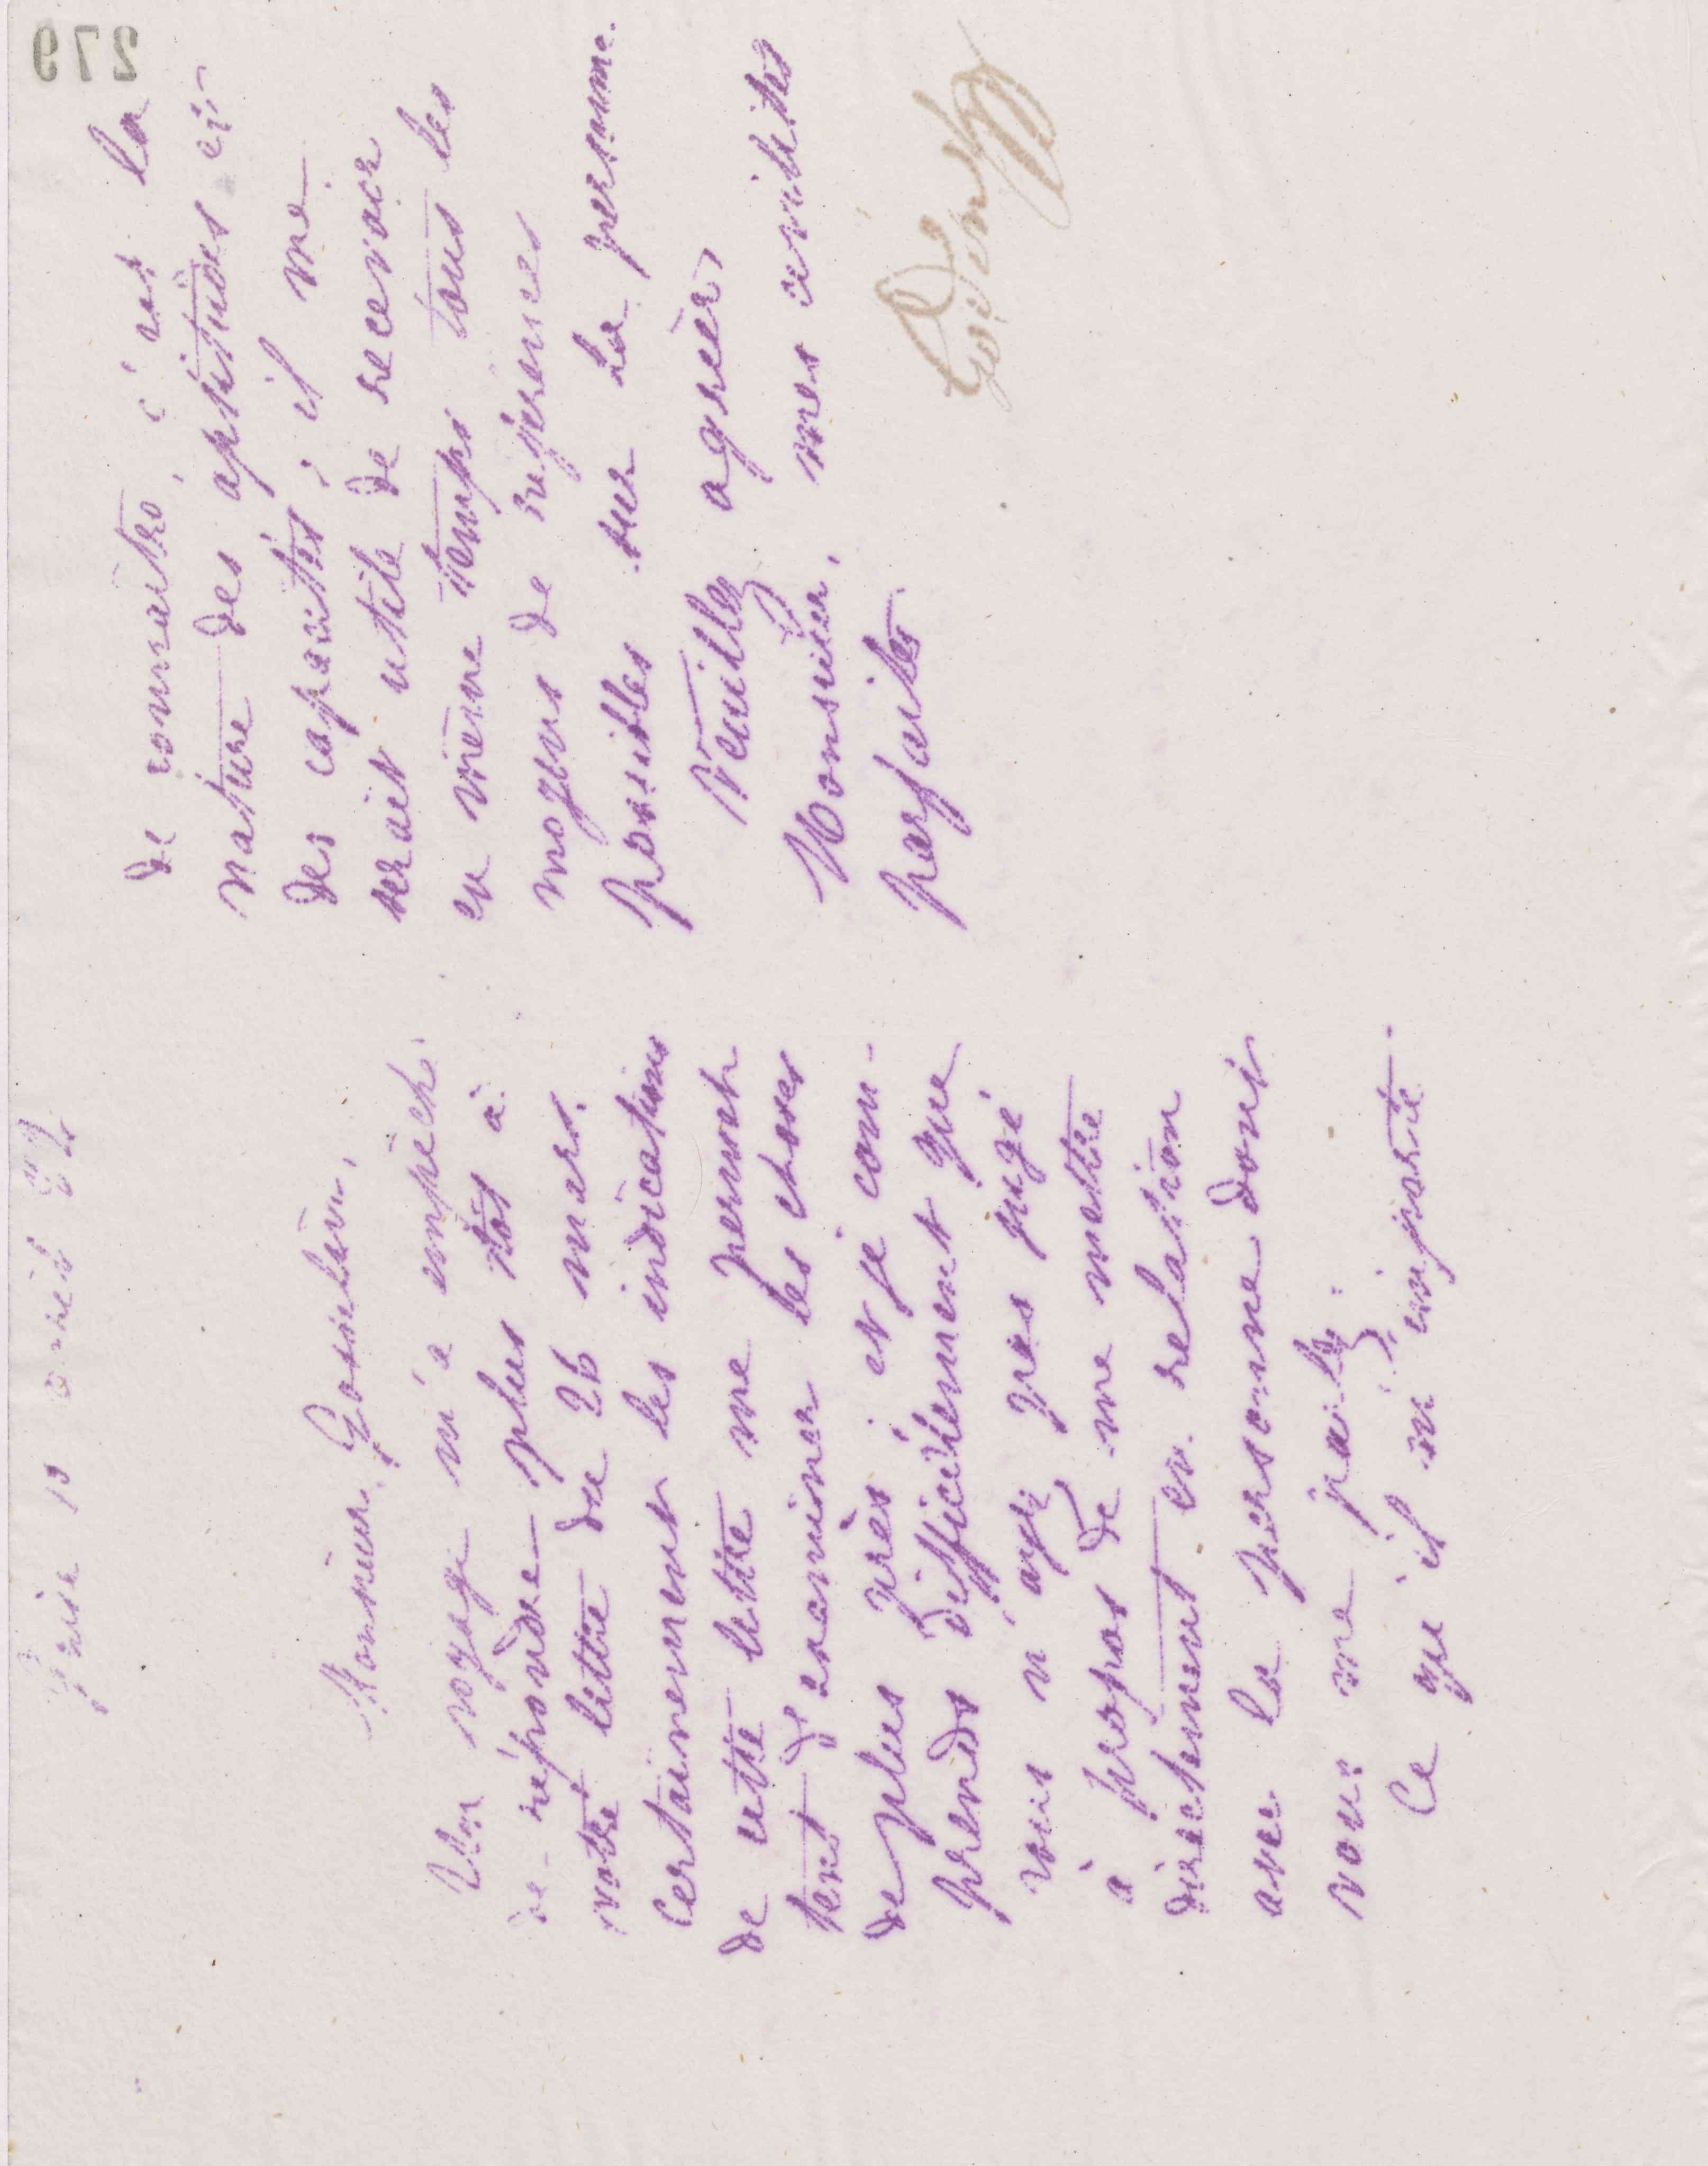 279
Guise 13 avril 82
Monsieur Gosselin,
Un voyage m'a empêché
de répondre plus tôt à
votre lettre du 26 mars.
Certainement les indications
de cette lettre me permet
tent d'examiner les choses
de plus près ; et je com-
prends difficilement que
vous n'ayez pas jugé
à propos de me mettre
directement en relation
avec la personne dont
vous me parlez.
Ce qu'il m'importe
de connaître, c'est la
nature des aptitudes et
des capacités ; il me
serait utile de recevoir
en même temps tous les
moyens de références
possibles sur la personne.
Veuillez agréer,
Monsieur, mes civilités
parfaites
Godin